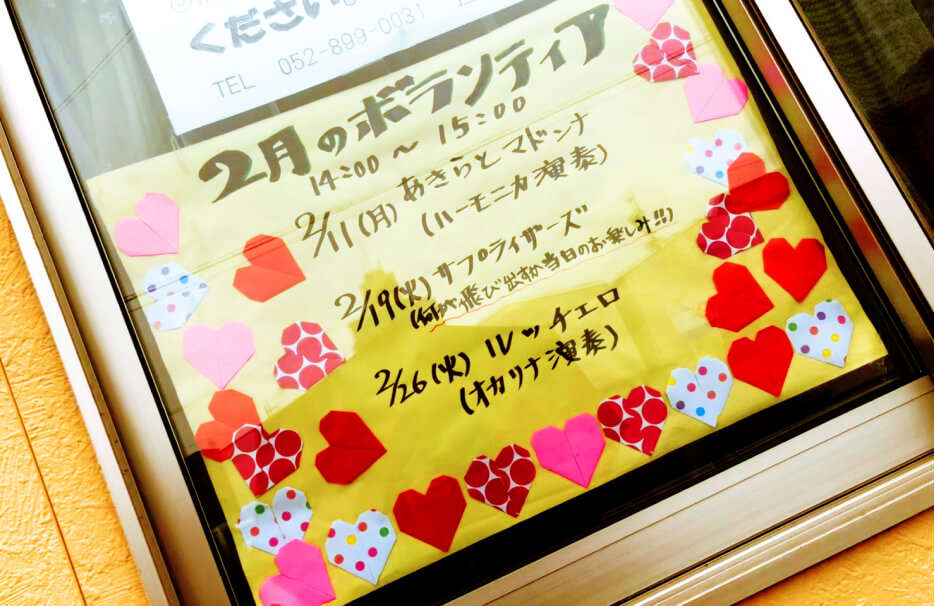 ください。
TEL 052-899-0031
2月のボランティア
14:00 ~ 15:00
2/11(月) あきらとマドンナ
(ハーモニカ演奏)
2/19(火) サプライザーズ
(何が飛び出すか当日のお楽しみ!!)
2/26(火) ルッチェロ
(オカリナ演奏)